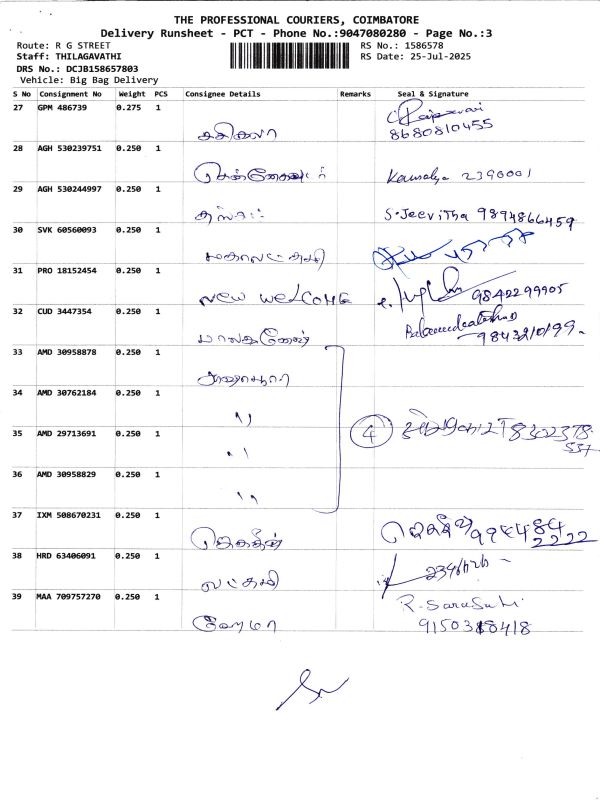 THE PROFESSIONAL COURIERS, COIMBATORE
Delivery Runsheet - PCT - Phone No.:9047080280 - Page No.:3
Route: R G STREET
RS No.: 1586578
Staff: THILAGAVATHI
RS Date: 25-Jul-2025
DRS No.: DCJB158657803
Vehicle: Big Bag Delivery
S No Consignment No Weight PCS Consignee Details Remarks Seal & Signature
27 GPM 486739 0.275 1
சசிகலா 8680810455
28 AGH 530239751 0.250 1
Kausalya 2390001
29 AGH 530244997 0.250 1
S.Jeevitha 9894866459
30 SVK 60560093 0.250 1
மகாலட்சுமி
31 PRO 18152454 0.250 1
New welcome 9842299905
32 CUD 3447354 0.250 1
பாலகணேஷ் 9843210199
33 AMD 30958878 0.250 1
34 AMD 30762184 0.250 1
"
35 AMD 29713691 0.250 1
" 4 8302378
537
36 AMD 30958829 0.250 1
"
37 IXM 508670231 0.250 1
ஜெகதீஷ் 994484
2222
38 HRD 63406091 0.250 1
லட்சுமி
39 MAA 709757270 0.250 1
R. Sarasuthi
ஹேமா 9150318418